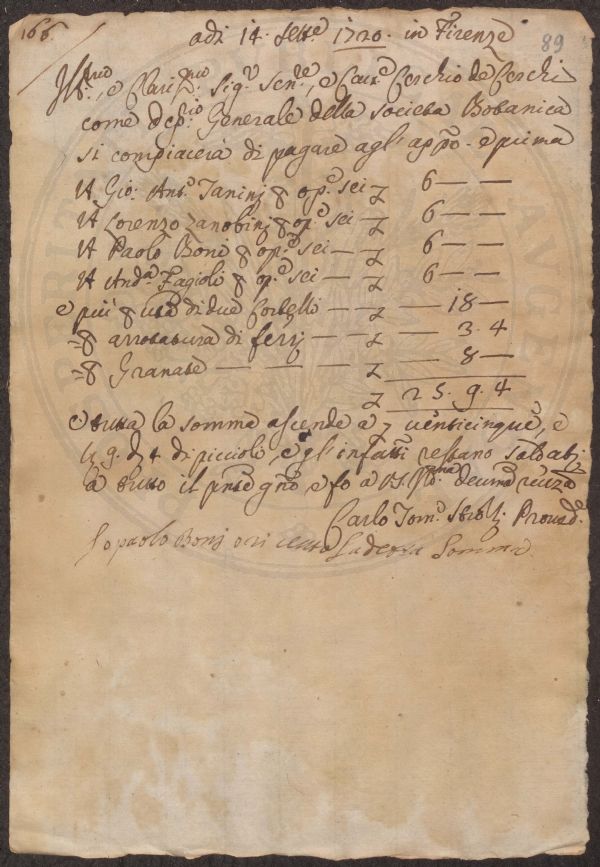 166.
adi 14. Sett.e 1720. in Firenze
89
Ill.mo, e Clariss.mo Sig.r Sen.e, e Cav.e Cerchio de Cerchi
come dep.rio Generale della Società Botanica
si compiacerà di pagare agl' app.o e prima
A Gio: Ant.o Tanini p op.e sei 6 — —
A Lorenzo Zanobini p op.e sei — 6 — —
A Paolo Boni p op.e sei — 6 — —
A And.a Fagioli p op.e sei — 6 — —
e più p di due Corbelli — — 18 —
p arrotatura di ferri — — — 3. 4
p Granate — — — — 8 —
25. 9. 4
e tutta la somma ascende a venticinque, e
9. d 4 di piccioli, e gl' infatti restano saldati
a tutto il pnte gno e fo a V.S. Ill.ma
Carlo Tom.o Proved.e
Io paolo Bonj o riceuto la detta Somma